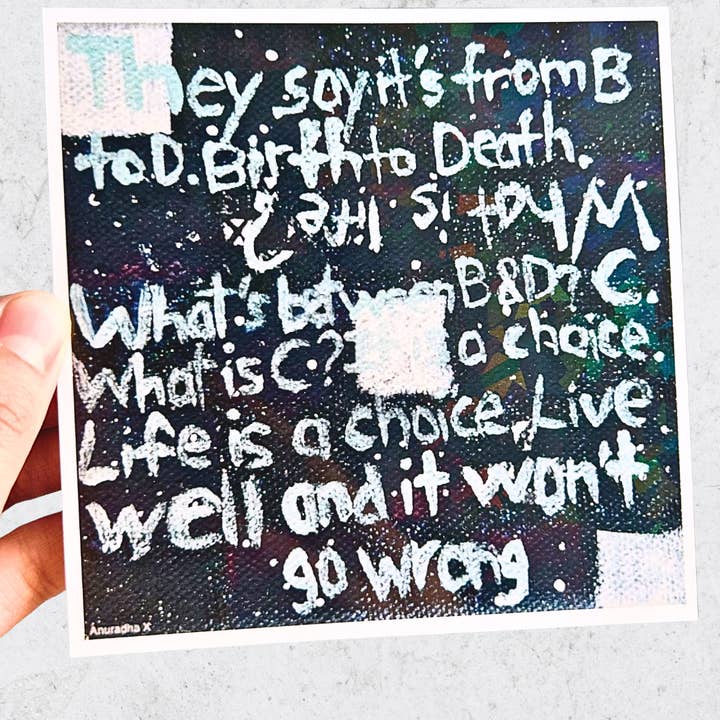 They say it's from B
to D. Birth to Death.
What is life?
What's between B & D? C.
What is C? a choice.
Life is a choice. Live
well and it won't
go wrong
Anuradha X